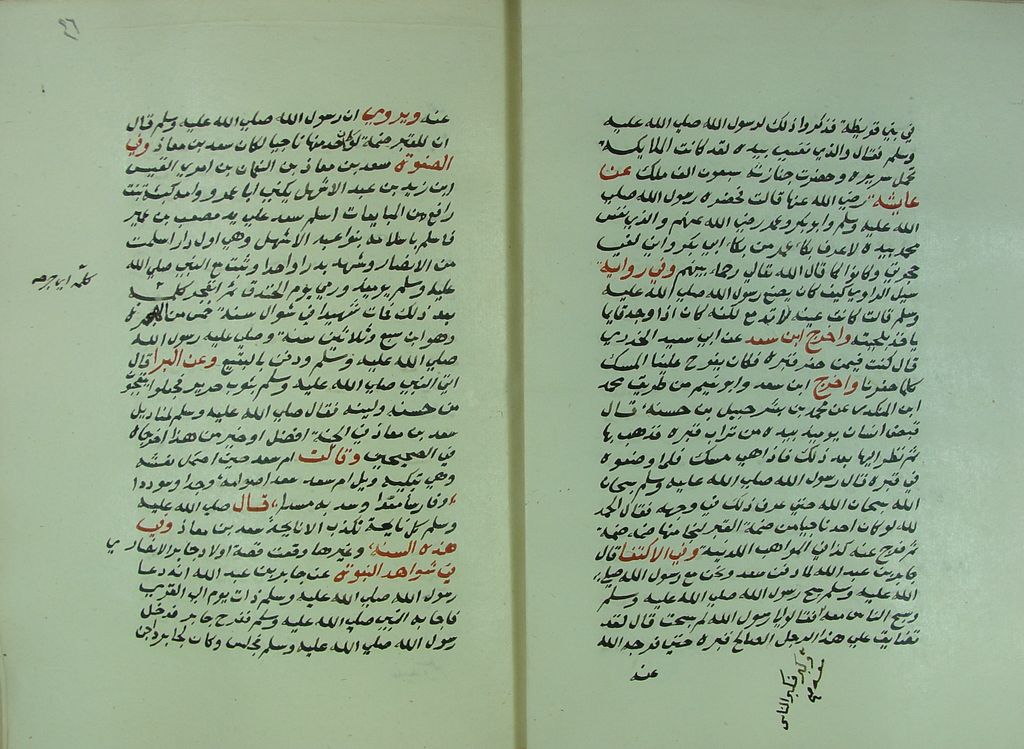 في بني قريظة فذكروا ذلك لرسول الله صلى الله عليه
وسلم فقال والذي نفسي بيده لقد كانت الملايكة
تحمل سريره وحضرت جنازته سبعون الف ملك عن
عايشة رضي الله عنها قالت فحضره رسول الله صلى
الله عليه وسلم وابو بكر وعمر رضي الله عنهم والذي نفس
محمد بيده لاعرف بكا عمر من بكا ابي بكر واني لفي
حجرتي وكانوا كما قال الله تعالى رحماء بينهم وفي رواية
سيل الراوي كيف كان يصنع رسول الله صلى الله عليه
وسلم قالت كانت عينه لا تدمع لكنه كان اذا وجد فانما
ياخذ بلحيته واخرج ابن سعد عن ابي سعيد الخدري
قال كنت فيمن حفر قبره فكان يفوح علينا المسك
كلما حفرنا واخرج ابن سعد وابو نعيم من طريق محمد
ابن المنكدر عن محمد بن شرحبيل بن حسنة قال
قبض انسان يوميذ بيده من تراب قبره فذهب بها
ثم نظر اليها بعد ذلك فاذا هي مسك فلما وضعوه
في قبره قال رسول الله صلى الله عليه وسلم سبحان
الله سبحان الله حتى عرف ذلك في وجهه فقال الحمد
لله لو كان احد ناجيا من ضمة القبر لنجا منها ضم ضمة
ثم فرج عنه كذا في المواهب اللدنية وفي الاكتفا قال
جابر بن عبد الله لما دفن سعد ونحن مع رسول الله صلى
الله عليه وسلم سبح رسول الله صلى الله عليه وسلم
وسبح الناس معه فقالوا يا رسول الله لم سبحت قال لقد
تضايق على هذا الرجل الصالح قبره حتى فرجه الله
عنه
وكبر فكبر الناس
معه صح
عنه ويروي ان رسول الله صلى الله عليه وسلم قال
ان للقبر ضمة لو كان احد منها ناجيا لكان سعد بن معاذ وفي
الصفوة سعد بن معاذ بن النعمان بن امري القيس
ابن زيد بن عبد الاشهل يكني ابا عمرو وامه كبشة بنت
رافع من المبايعات اسلم سعد على يد مصعب بن عمير
فاسلم باسلامه بنو عبد الاشهل وهي اول دار اسلمت
من الانصار وشهد بدرا واحدا وثبت مع النبي صلى الله
عليه وسلم يوميذ ورمي يوم الخندق ثم انفجر كلمه
بعد ذلك فمات شهيدا في شوال سنة خمس من الهجرة
وهو ابن سبع وثلاثين سنة وصلى عليه رسول الله
صلى الله عليه وسلم ودفن بالبقيع وعن البرا قال
اتي النبي صلى الله عليه وسلم بثوب حرير فجعلوا يتعجبون
من حسنه ولينه فقال صلى الله عليه وسلم لمناديل
سعد بن معاذ في الجنة افضل او خير من هذا اخرجاه
في الصحيحين وقالت ام سعد حين احتمل نعشه
وهي تبكيه ويل ام سعد سعدا صرامة وحدا وسوددا
وفارسا معدا وسد به مسدا قال صلى الله عليه
وسلم كل نايحة تكذب الا نايحة سعد بن معاذ وفي
هذه السنة وغيرها وقعت قصة اولاد جابر الانصاري
في شواهد النبوة عن جابر بن عبد الله انه دعا
رسول الله صلى الله عليه وسلم ذات يوم الى القرى
فاجابه النبي صلى الله عليه وسلم ففرح جابر فدخل
رسول الله صلى الله عليه وسلم فجلس وكان لجابر داجن
كلمه اي جرحه